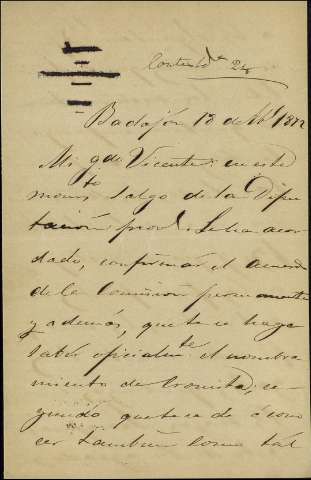 Contest.da 24
Badajóz 18 de Abl 1872
Mi qdo Vicente: en este
momto salgo de la Dipu
tación provl. Se ha acor
dado, confirmar el acuerdo
de la Comision permanente
y además, que te se haga
saber oficialmte el nombra
miento de Cronista, se
gundo que te se dé á cono
cer tambien como tál